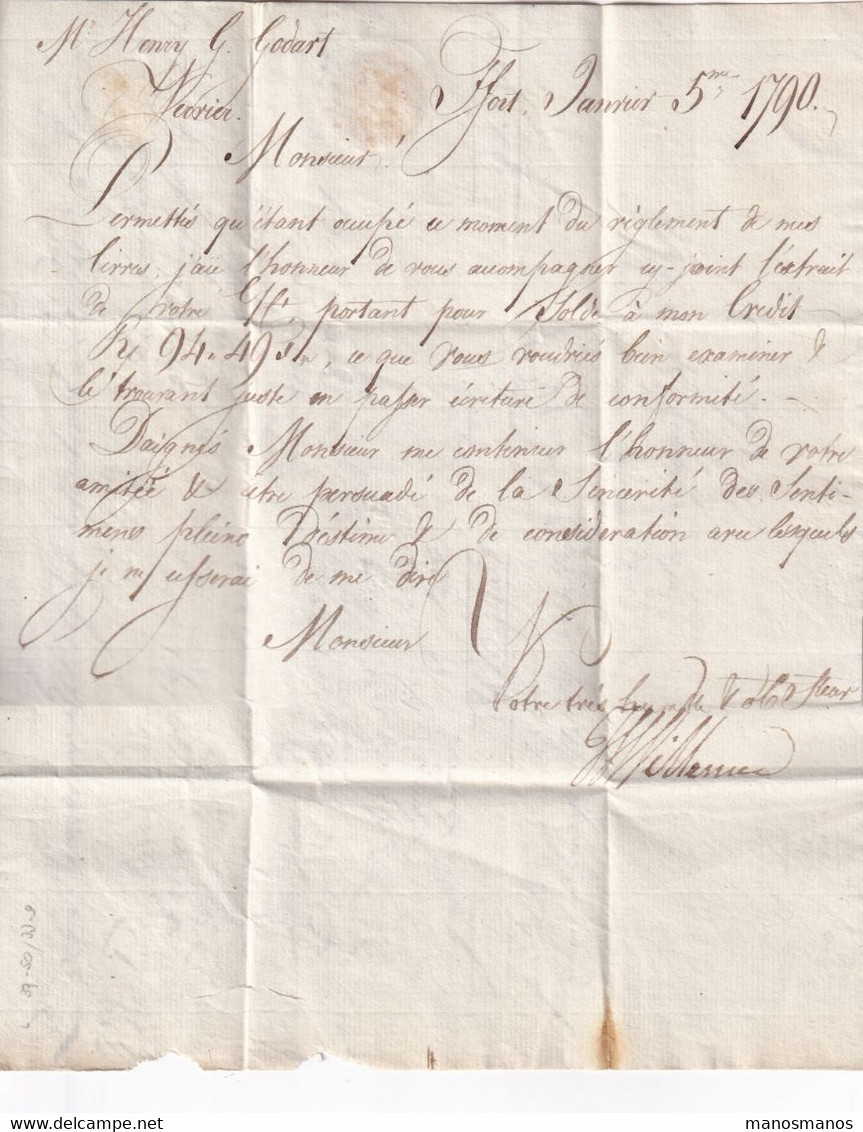 Mr Henry G. Godart
Ffort, Janvier 5me 1790.
Vervier.
Monsieur!
Permettés qu'étant occupé ce moment du règlement de mes
livres, j'aïe l'honneur de vous accompagner cy-joint l'éxtrait
de votre Cpt, portant pour Solde à mon Credit
94.49, ce que vous voudriés bien examiner &
le trouvant juste en passer écriture de conformité. -
Daignés Monsieur me continuer l'honneur de votre
amitiée & être persuadé de la Sincerité des Senti-
mens pleins d'éstime & de consideration avec lesquels
je ne cesserai de me dire
Monsieur
Votre très humble & obt Steur
39-50/33-9
manosmanos